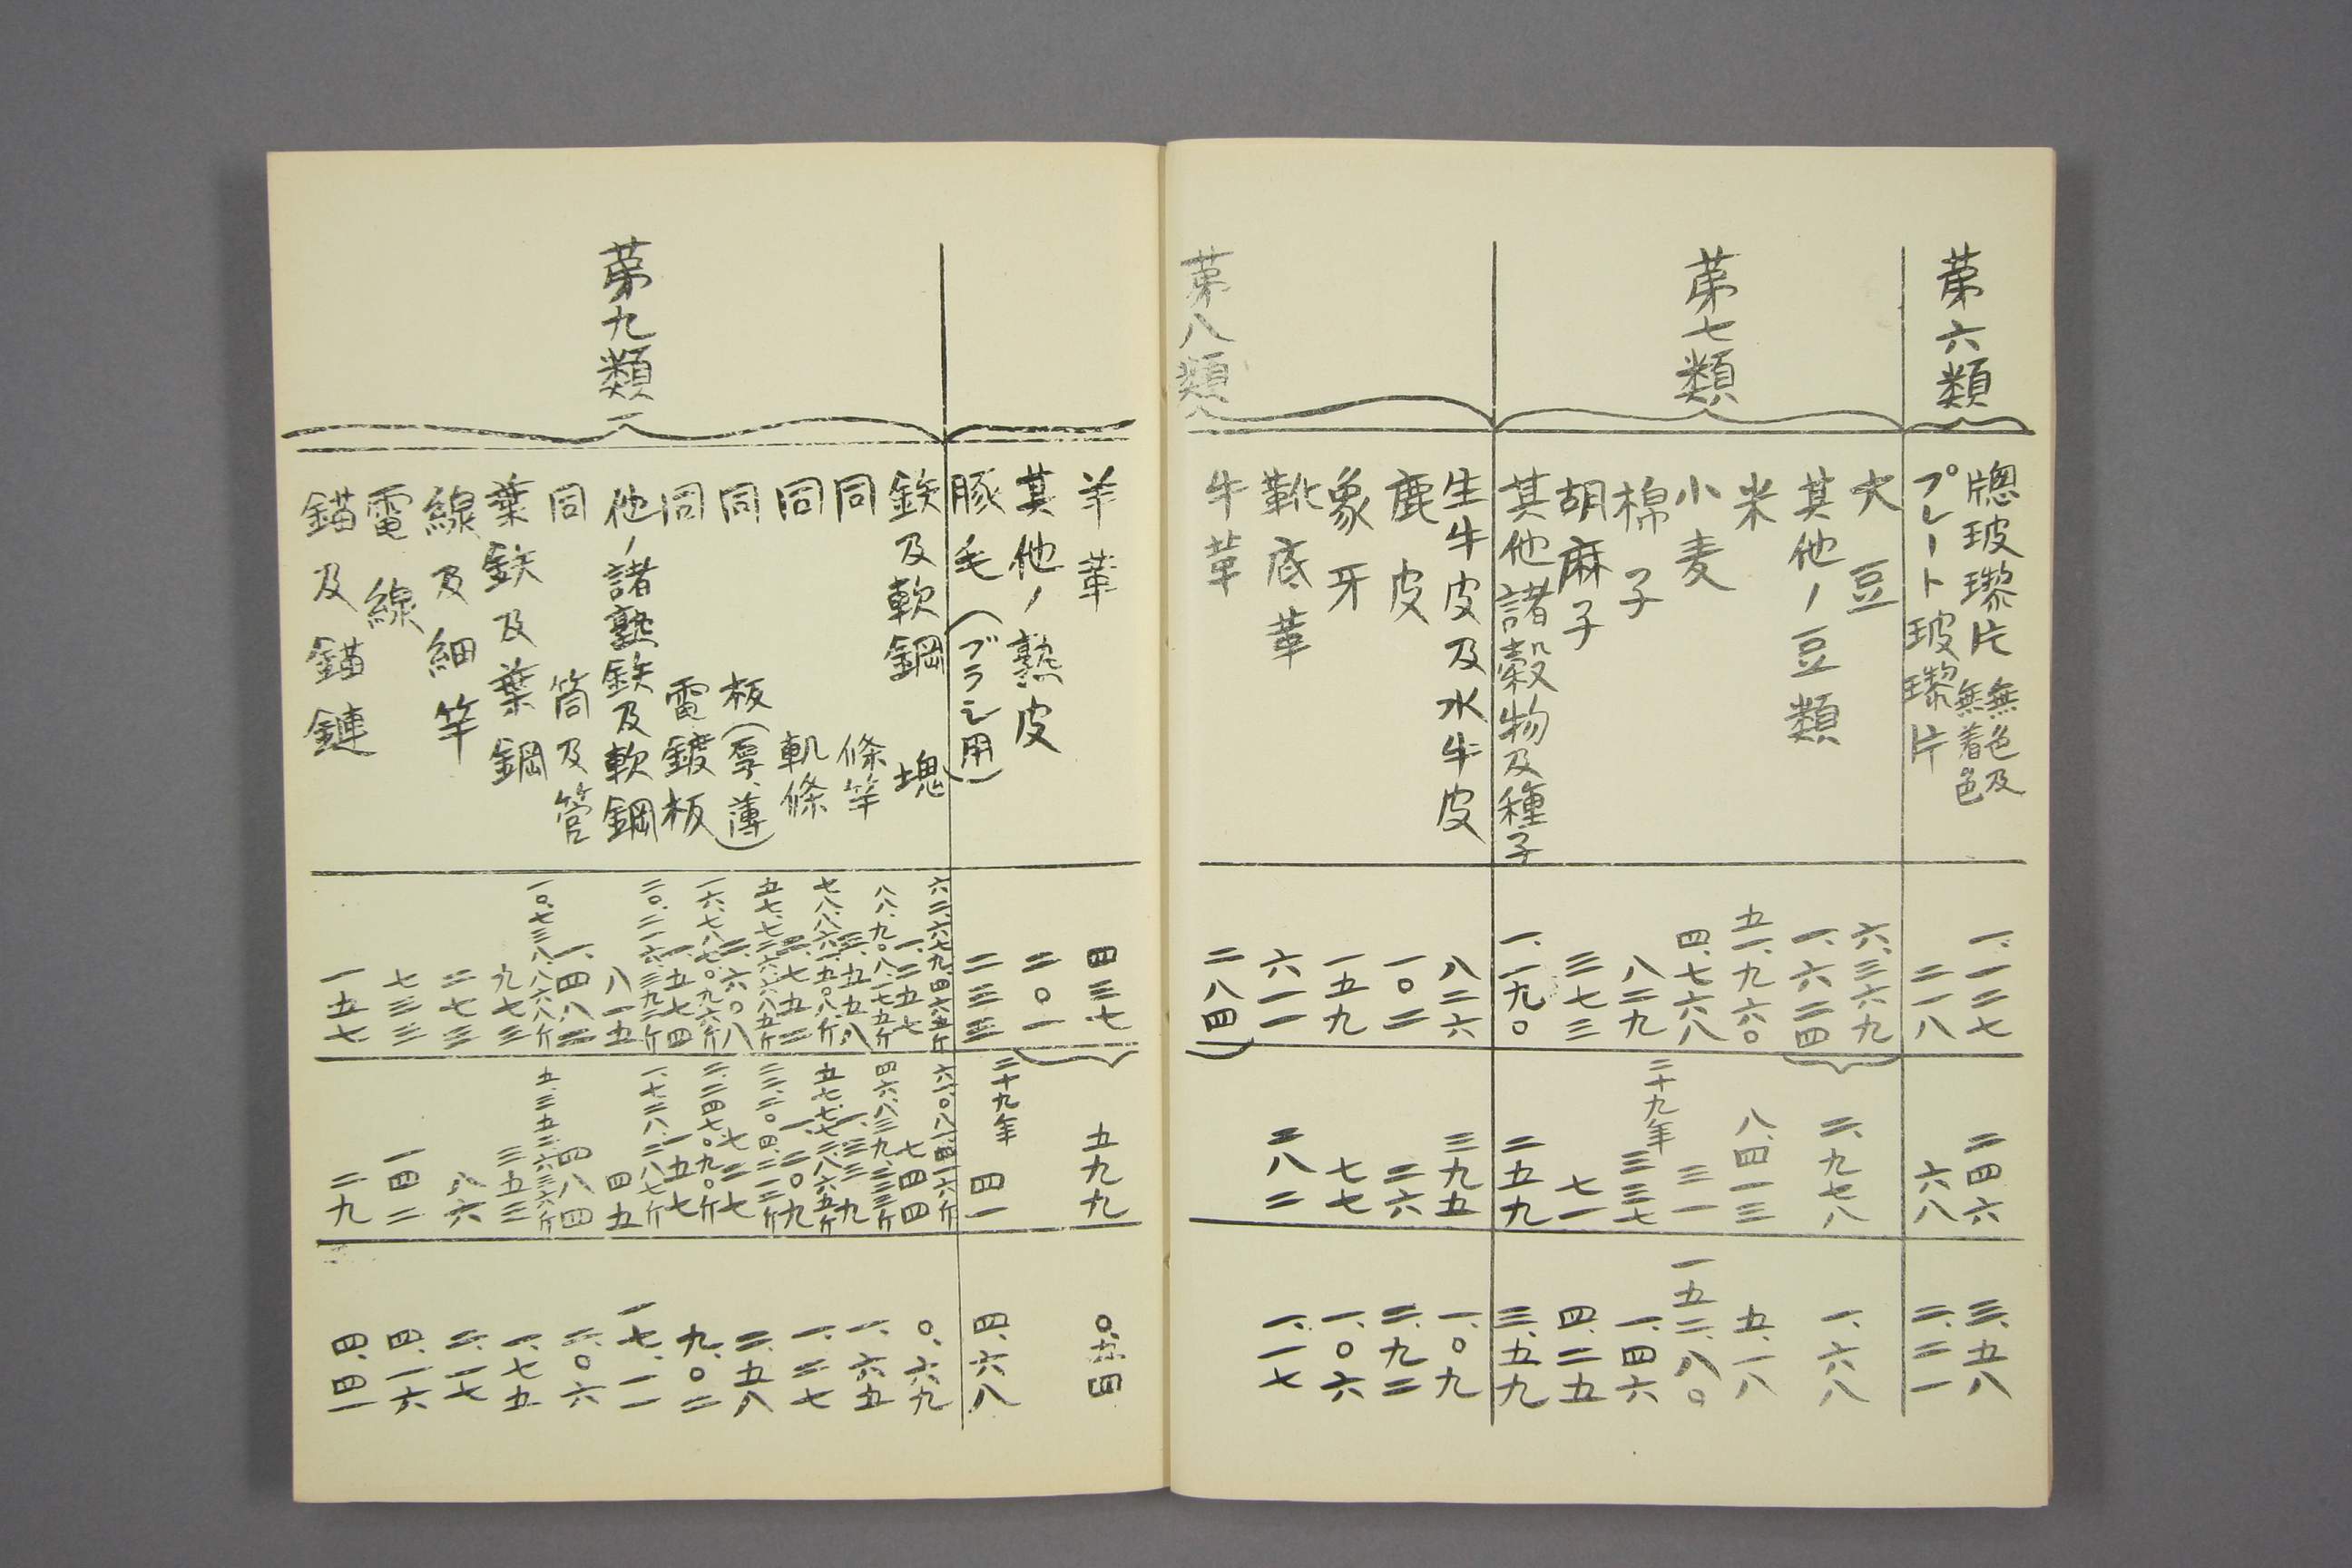 第六類
牕玻瓈片 無色及無着色 一、一三七 二四六 三、五八
プレート玻瓈片 二一八 六八 二、二一
第七類
大豆 六、三六九
其他ノ豆類 一、六二四 二、九七八 一、六八
米 五一、九六〇 八、四一三 五、一八
小麦 四、七六八 三一 一五二、八〇
棉子 八二九 二十九年 三三七 一、四六
胡麻子 三七三 七一 四、二五
其他諸穀物及種子 一、一九〇 二五九 三、五九
第八類
生牛皮及水牛皮 八二六 三九五 一、〇九
鹿皮 一〇二 二六 二、九二
象牙 一五九 七七 一、〇六
靴底革 六一一 二八二 一、一七
牛革 二八四
羊革 四三七
其他ノ熟皮 二〇一 五九九 〇、五四
豚毛(ブラシ用) 二三三 二十九年 四一 四、六八
第九類
鉄及軟鋼 塊 一、二五七 七四四 〇、六九
同 條竿 三、五五八 一、三三九 一、六五
同 軌條 二、七五二 一、二〇九 一、二七
同 板(厚、薄) 二、六〇八 七二七 二、五八
同 電鍍板 一、五七四 一五七 九、〇二
他ノ諸熟鉄及軟鋼 八一五 四五 一七、一一
同 筒及管 一、四八二 四八四 二、〇六
葉鉄及葉鋼 九七三 三五三 一、七五
線及細竿 二七三 八六 二、一七
電線 七三三 一四二 四、一六
錨及錨鏈 一五七 二九 四、四一